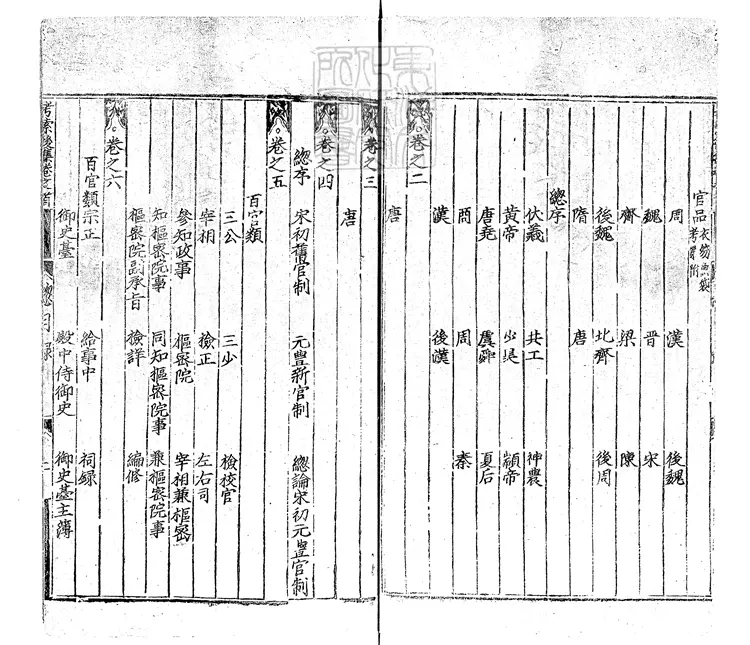 官品
周 漢 後魏
魏 晉 宋
齊 梁 陳
後魏 北齊 後周
隋 唐
總序
伏羲 共工 神農
黃帝 少昊 顓帝
唐堯 虞舜 夏后
商 周 秦
漢 後漢
卷之二
唐
卷之三
唐
卷之四
總序 宋初舊官制 元豐新官制 總論宋初元豐官制
卷之五
百官類
三公 三少 檢校官
宰相 檢正 左右司
參知政事 樞密院 宰相兼樞密
知樞密院事 同知樞密院事 兼樞密院事
樞密院副承旨 檢詳 編修
卷之六
百官類 宗正 給事中 祠錄
御史臺 殿中侍御史 御史臺主簿
總目錄